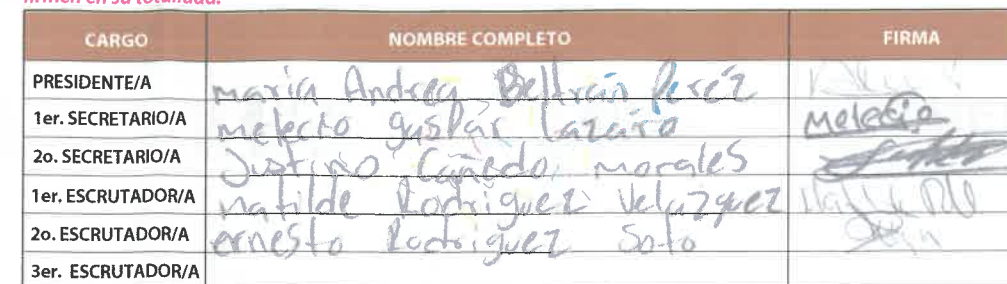 firmen en su totalidad.
CARGO NOMBRE COMPLETO FIRMA
PRESIDENTE/A maria Andrea Beltrán Peréz
1er. SECRETARIO/A melecto gaspar Lazaro Melecio
2o. SECRETARIO/A Justino Cañedo morales
1er. ESCRUTADOR/A matilde Rodriguez Velazquez
2o. ESCRUTADOR/A ernesto Rodriguez Soto
3er. ESCRUTADOR/A